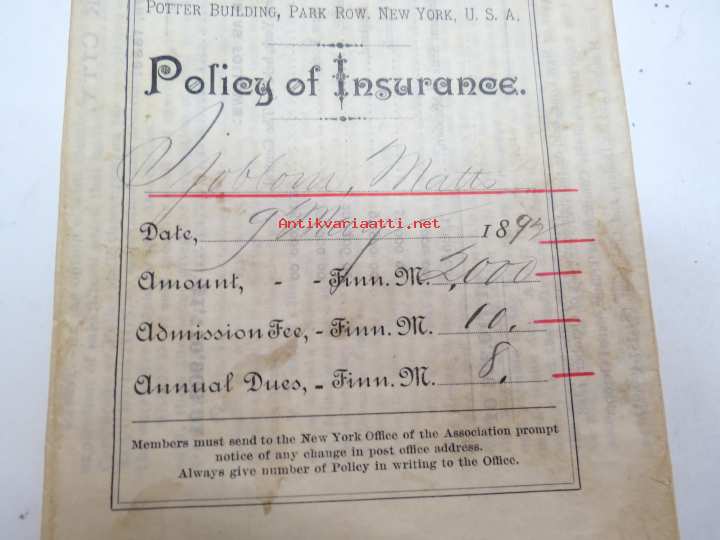 POTTER BUILDING, PARK ROW. NEW YORK, U. S. A.
Policy of Insurance.
Sjoblom, Matts
Antikvariaatti.net
Date, 9 May 189
Amount, - - Finn. M. 2,000
Admission Fee, - Finn. M. 10.
Annual Dues, - Finn. M. 8.
Members must send to the New York Office of the Association prompt
notice of any change in post office address.
Always give number of Policy in writing to the Office.